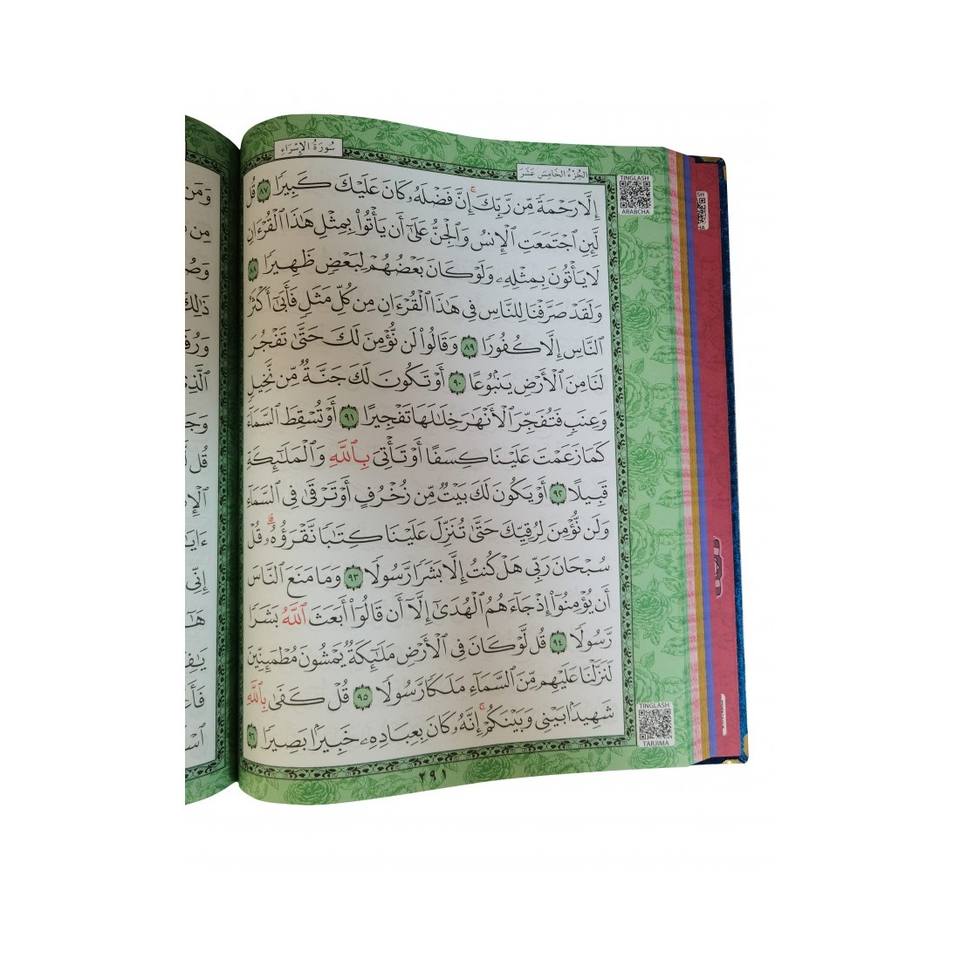 سُورَةُ الإِسْرَاءِ
الجُزْءُ الخَامِسَ عَشَرَ
TINGLASH
ARABCHA
إِلَّا رَحْمَةً مِّن رَّبِّكَ ۚ إِنَّ فَضْلَهُۥ كَانَ عَلَيْكَ كَبِيرًا ٨٧ قُل
لَّئِنِ ٱجْتَمَعَتِ ٱلْإِنسُ وَٱلْجِنُّ عَلَىٰٓ أَن يَأْتُوا۟ بِمِثْلِ هَٰذَا ٱلْقُرْءَانِ
لَا يَأْتُونَ بِمِثْلِهِۦ وَلَوْ كَانَ بَعْضُهُمْ لِبَعْضٍ ظَهِيرًا ٨٨
وَلَقَدْ صَرَّفْنَا لِلنَّاسِ فِى هَٰذَا ٱلْقُرْءَانِ مِن كُلِّ مَثَلٍ فَأَبَىٰٓ أَكْثَرُ
ٱلنَّاسِ إِلَّا كُفُورًا ٨٩ وَقَالُوا۟ لَن نُّؤْمِنَ لَكَ حَتَّىٰ تَفْجُرَ
لَنَا مِنَ ٱلْأَرْضِ يَنۢبُوعًا ٩٠ أَوْ تَكُونَ لَكَ جَنَّةٌ مِّن نَّخِيلٍ
وَعِنَبٍ فَتُفَجِّرَ ٱلْأَنْهَٰرَ خِلَٰلَهَا تَفْجِيرًا ٩١ أَوْ تُسْقِطَ ٱلسَّمَآءَ
كَمَا زَعَمْتَ عَلَيْنَا كِسَفًا أَوْ تَأْتِىَ بِٱللَّهِ وَٱلْمَلَٰٓئِكَةِ
قَبِيلًا ٩٢ أَوْ يَكُونَ لَكَ بَيْتٌ مِّن زُخْرُفٍ أَوْ تَرْقَىٰ فِى ٱلسَّمَآءِ
وَلَن نُّؤْمِنَ لِرُقِيِّكَ حَتَّىٰ تُنَزِّلَ عَلَيْنَا كِتَٰبًا نَّقْرَؤُهُۥ ۗ قُلْ
سُبْحَانَ رَبِّى هَلْ كُنتُ إِلَّا بَشَرًا رَّسُولًا ٩٣ وَمَا مَنَعَ ٱلنَّاسَ
أَن يُؤْمِنُوٓا۟ إِذْ جَآءَهُمُ ٱلْهُدَىٰٓ إِلَّآ أَن قَالُوٓا۟ أَبَعَثَ ٱللَّهُ بَشَرًا
رَّسُولًا ٩٤ قُل لَّوْ كَانَ فِى ٱلْأَرْضِ مَلَٰٓئِكَةٌ يَمْشُونَ مُطْمَئِنِّينَ
لَنَزَّلْنَا عَلَيْهِم مِّنَ ٱلسَّمَآءِ مَلَكًا رَّسُولًا ٩٥ قُلْ كَفَىٰ بِٱللَّهِ
شَهِيدًۢا بَيْنِى وَبَيْنَكُمْ ۚ إِنَّهُۥ كَانَ بِعِبَادِهِۦ خَبِيرًۢا بَصِيرًا ٩٦
TINGLASH
TARJIMA
٢٩١
وَمَن
ذَٰلِكَ
ٱلَّذِى
قُل